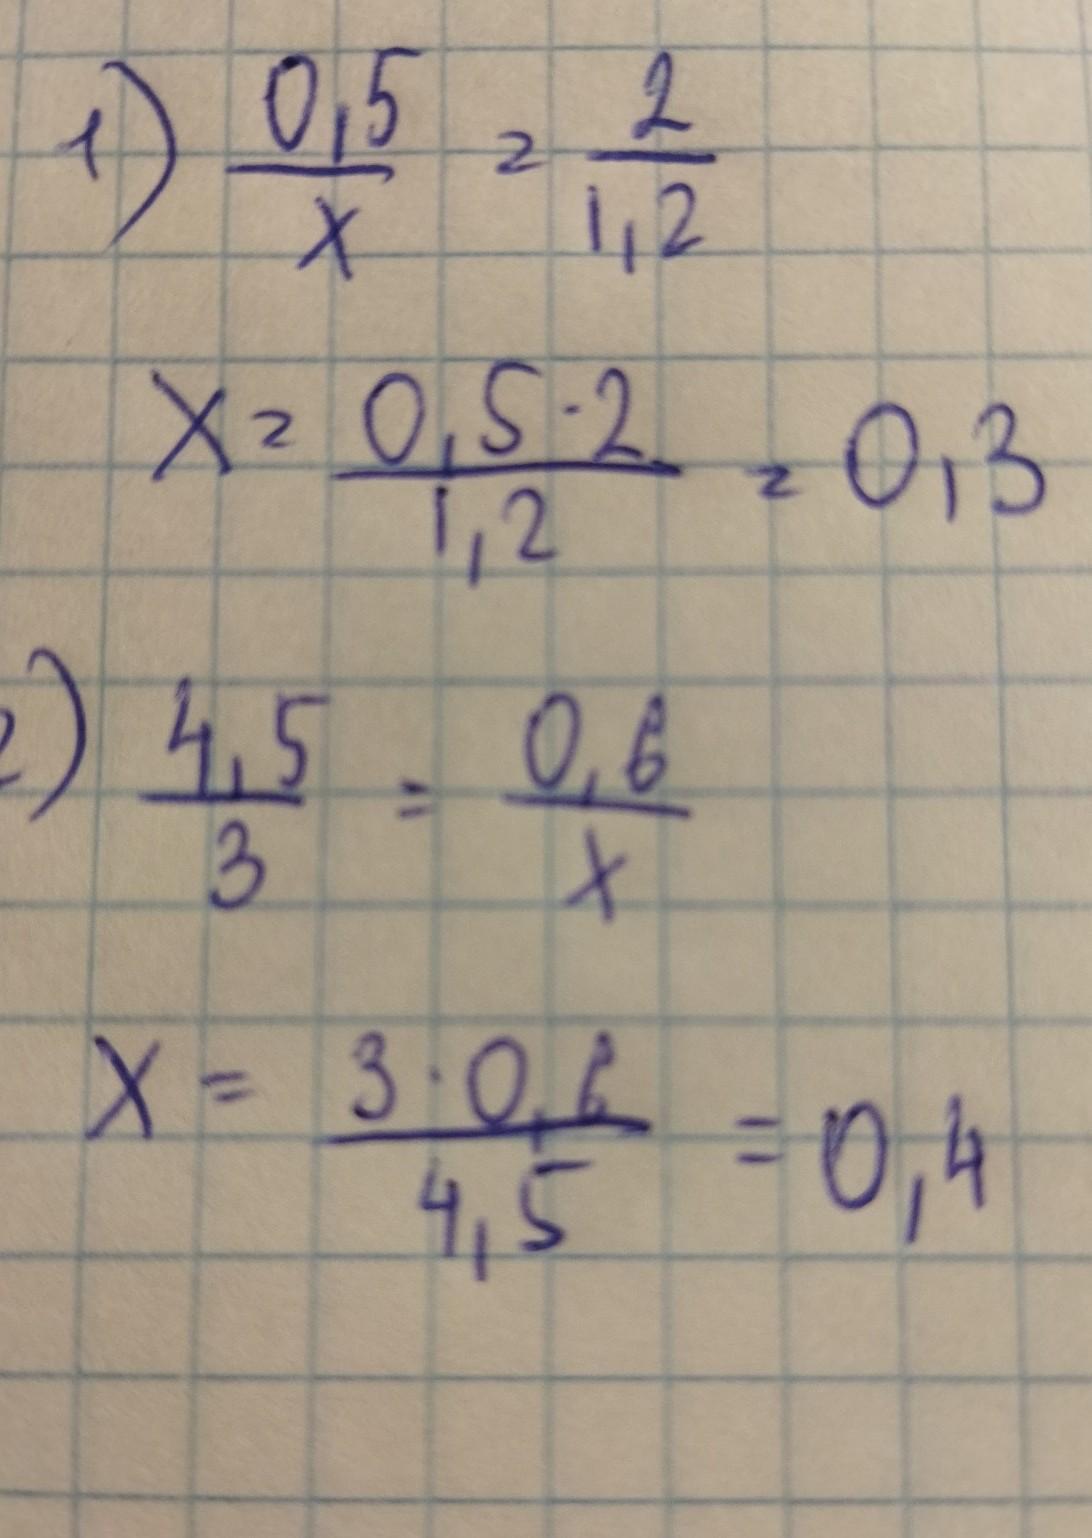 1) 0,5/x = 2/1,2
x = 0,5·2/1,2 = 0,3
2) 4,5/3 = 0,6/x
x = 3·0,6/4,5 = 0,4